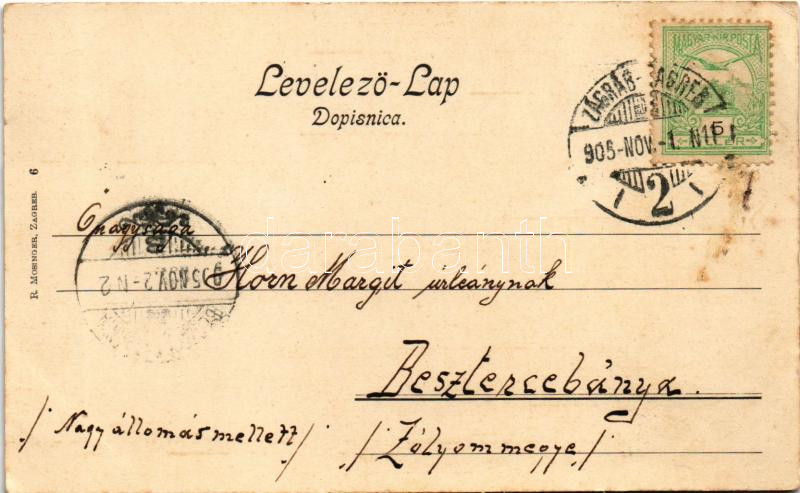 Levelező-Lap
Dopisnica.
MAGYAR KIR. POSTA
5
ZÁGRÁB-ZAGREB
905-NOV.-1. N11
2
R. MOSINGER, ZAGREB. 6
Őnagysága
905 NOV. 2-N 2
darabanth
Horn Margit úrleánynak
Besztercebánya.
/Nagy állomás mellett/
/Zólyommegye/